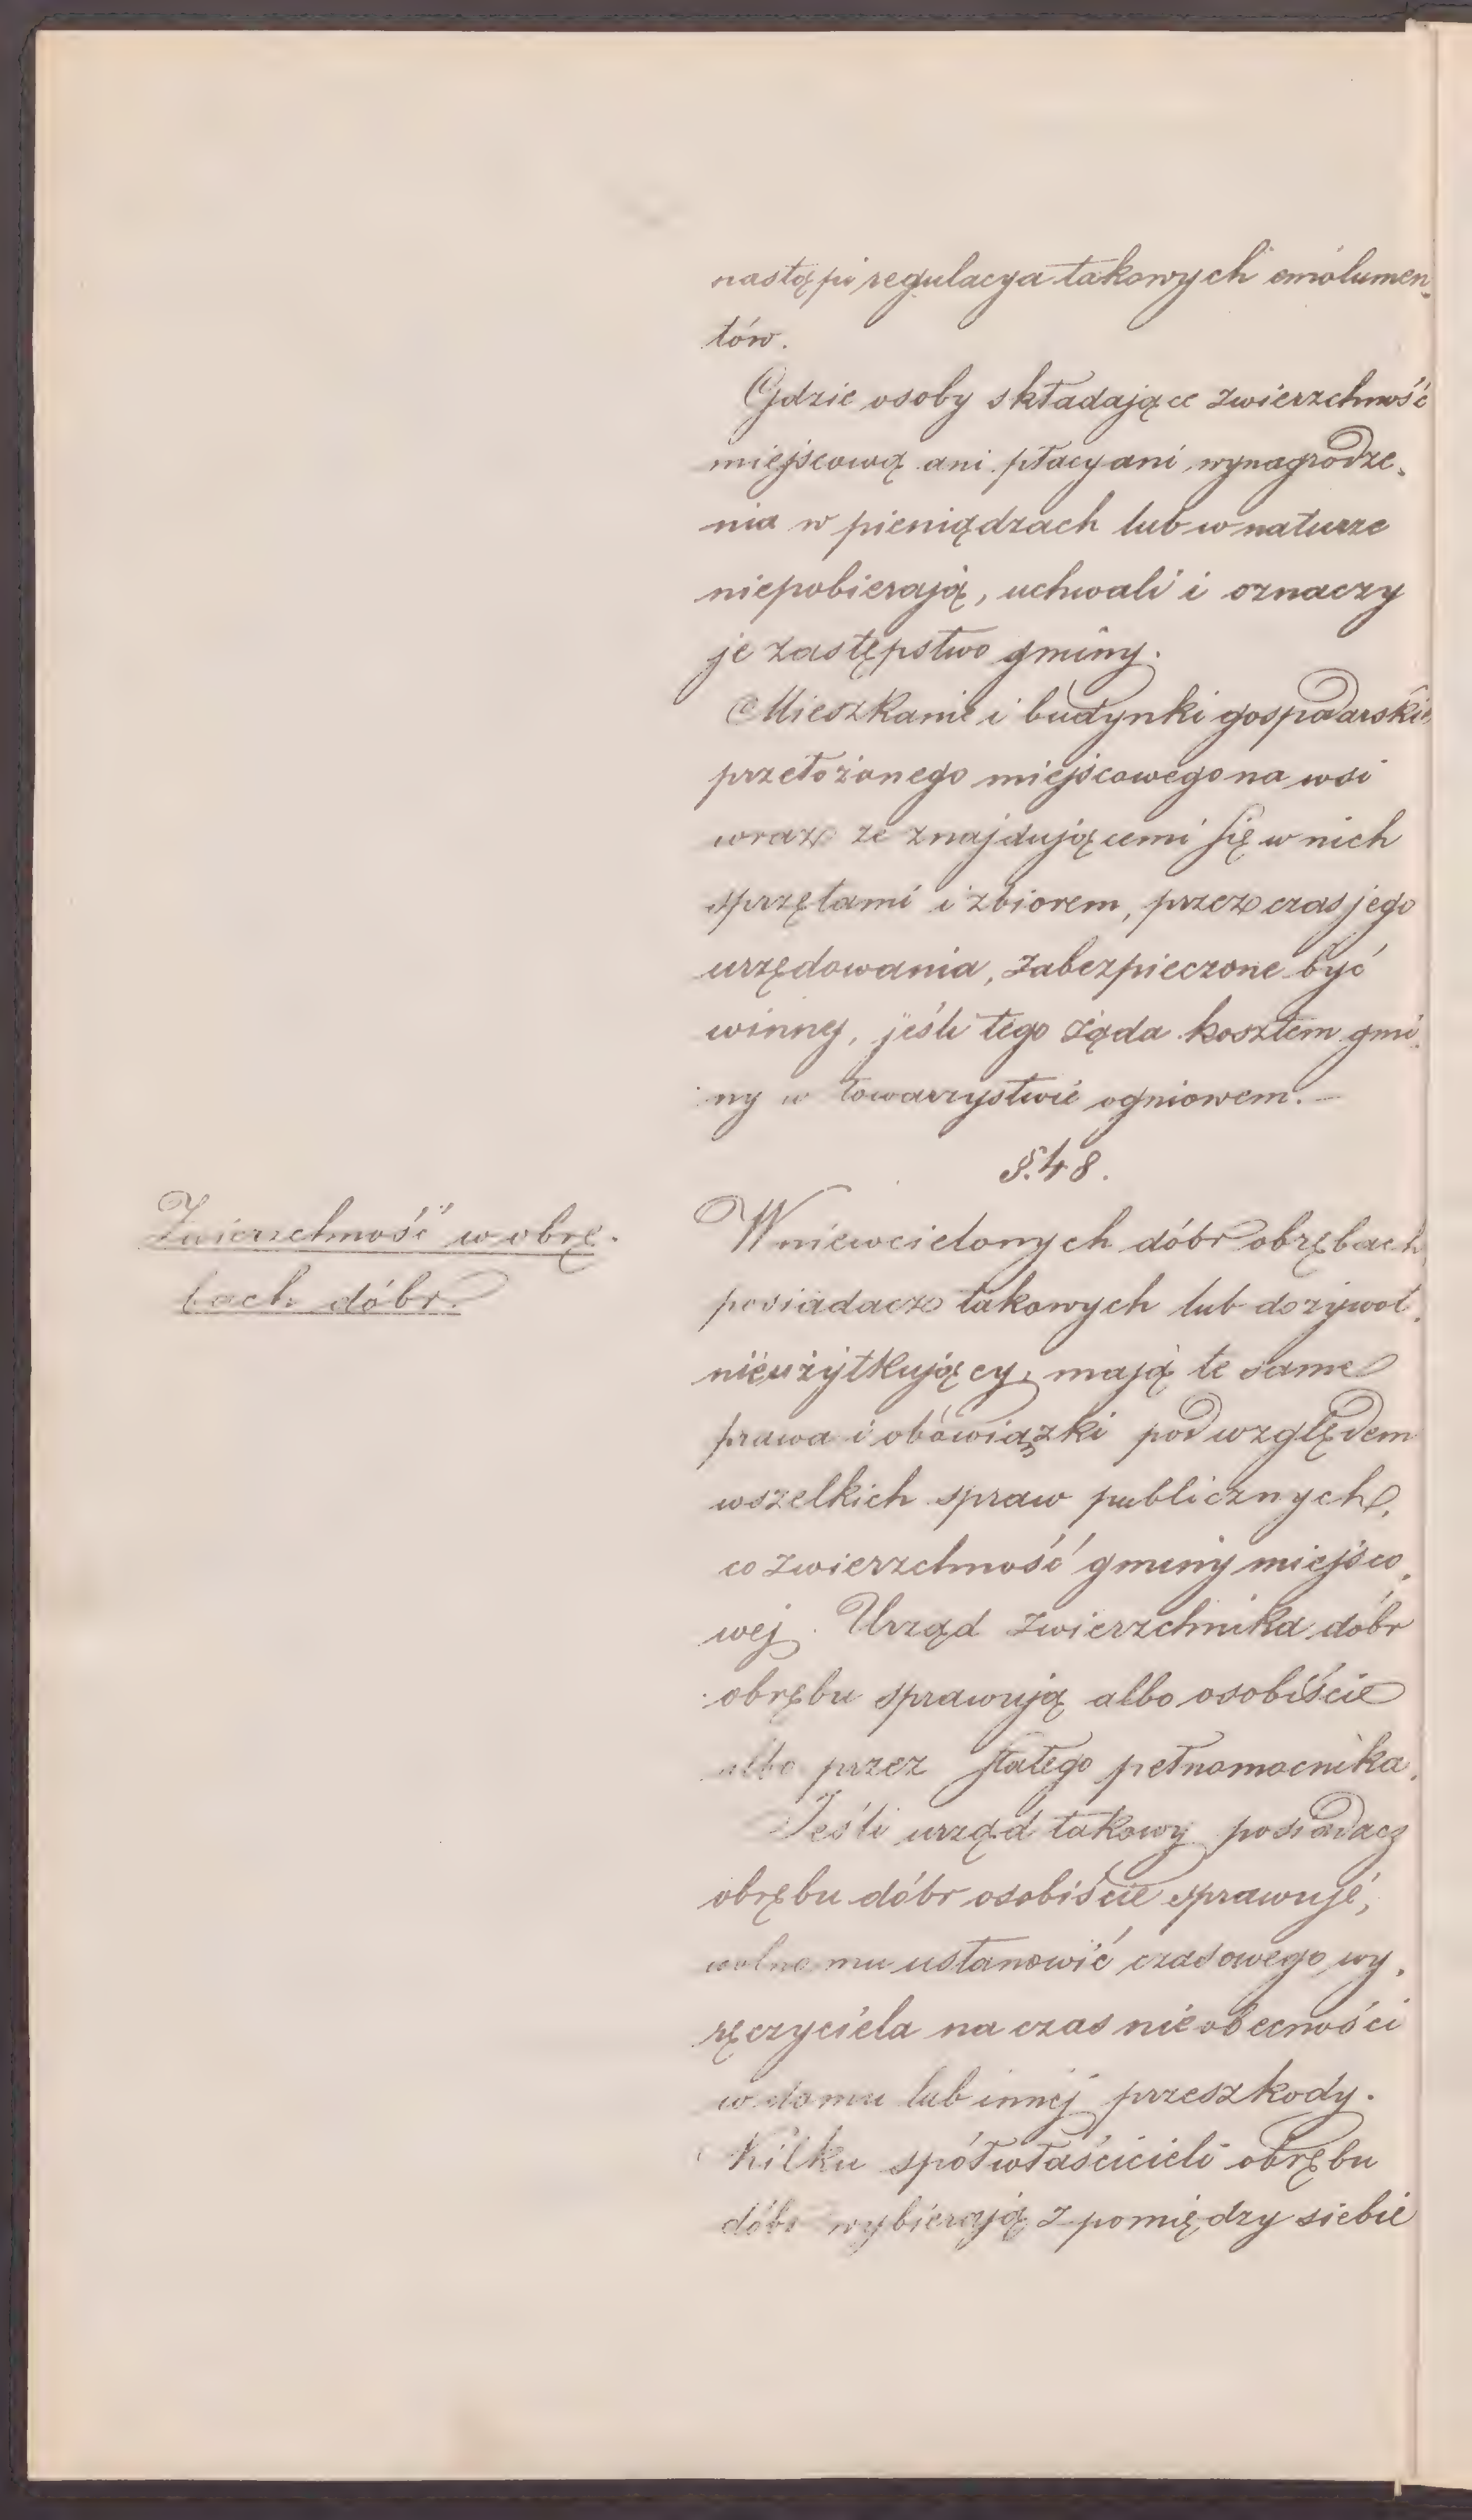 nastąpi regulacya takowych emolumen-
tów.
Gdzie osoby składające zwierzchność
miejscową ani płacy ani wynagrodze-
nia w pieniądzach lub w naturze
niepobierają, uchwali i oznaczy
je zastępstwo gminy.
Mieszkanie i budynki gospodarskie
przełożonego miejscowego na wsi
wraz ze znajdującemi się w nich
sprzętami i zbiorem, przez czas jego
urzędowania, zabezpieczone być
winny, jeśli tego żąda kosztem gmi-
ny w towarzystwie ogniowem. —
§. 48.
Zwierzchność w obrę-
bach dóbr.
W niewcielonych dóbr obrębach
posiadacze takowych lub dożywot-
nieużytkujący, mają te same
prawa i obowiązki pod względem
wszelkich spraw publicznych,
co zwierzchność gminy miejsco-
wej. Urząd zwierzchnika dóbr
obrębu sprawują albo osobiście
albo przez stałego pełnomocnika.
Jeśli urząd takowy posiadacz
obrębu dóbr osobiście sprawuje,
wolno mu ustanowić czasowego wy-
ręczyciela na czas nieobecności
w domu lub innej przeszkody.
Kilku spółwłaścicieli obrębu
dóbr wybierają z pomiędzy siebie